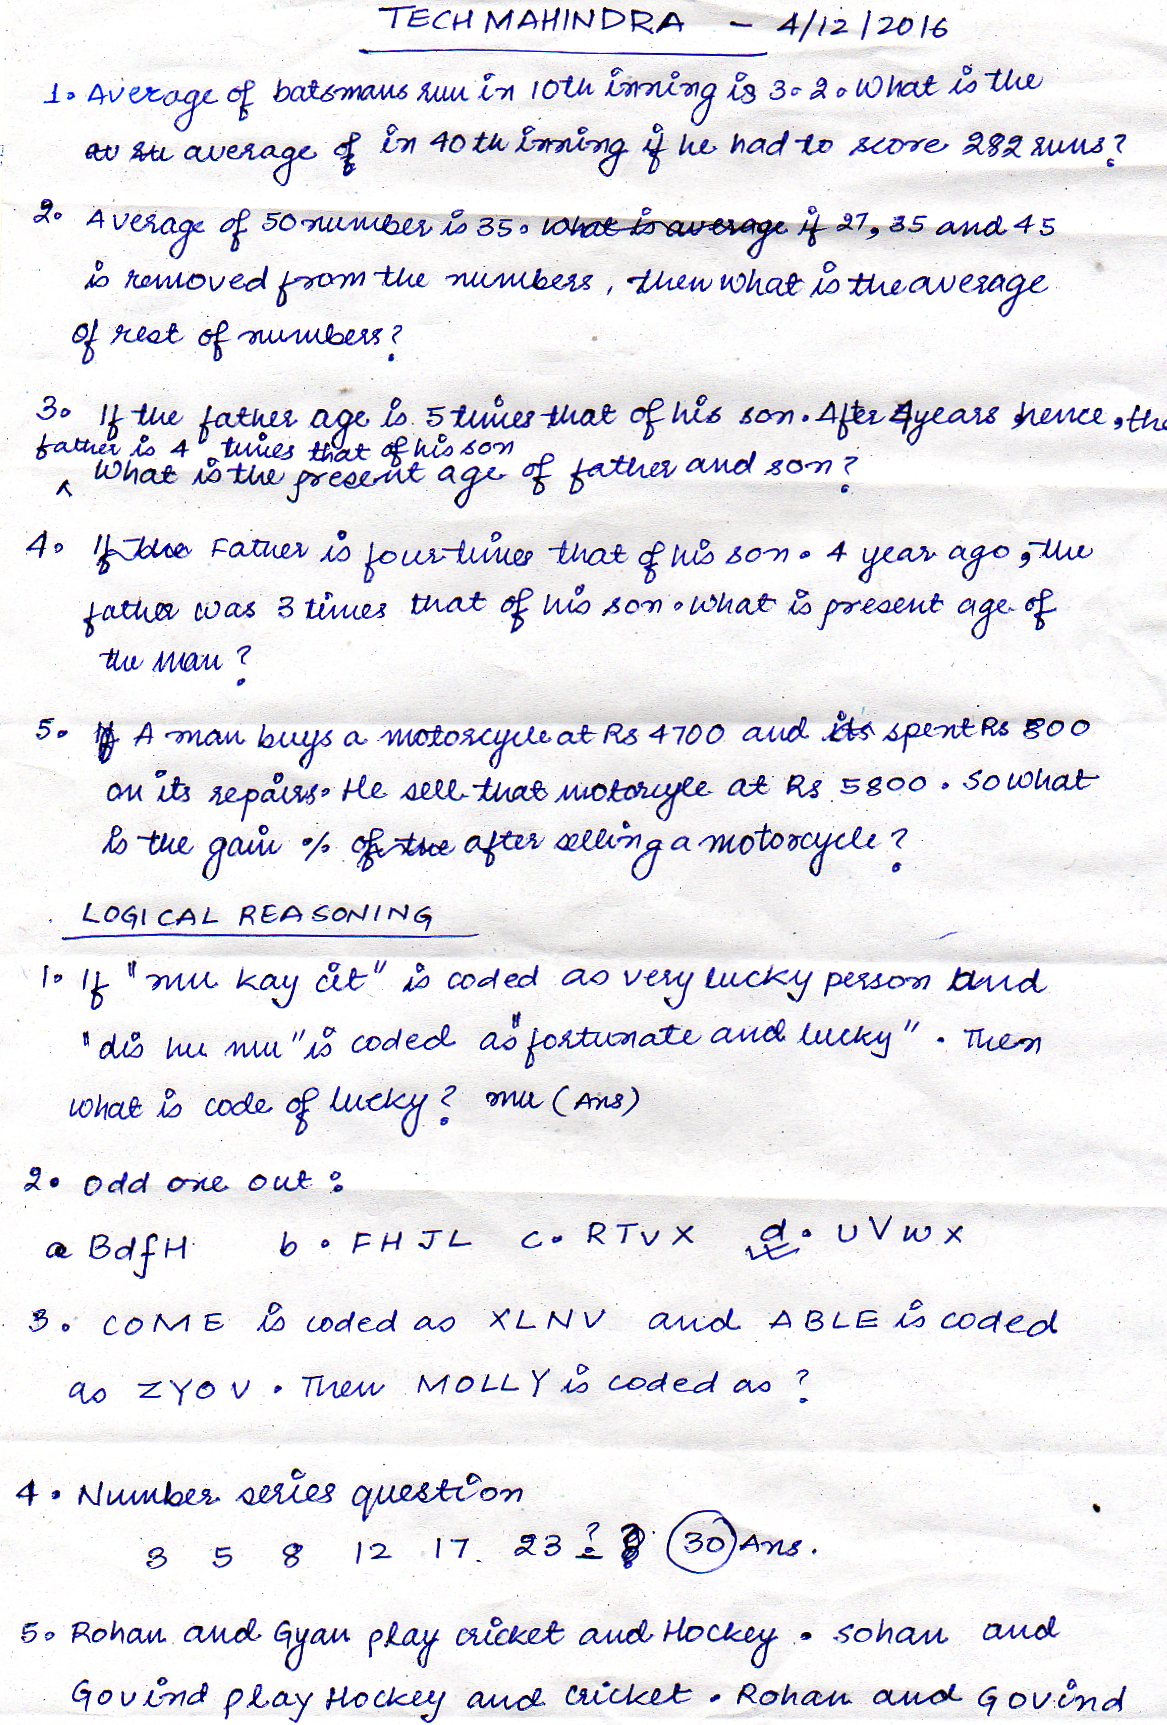 TECH MAHINDRA - 4/12/2016
1. Average of batsmans run in 10th inning is 3.2. What is the
average of in 40th inning if he had to score 282 runs?
2. Average of 50 number is 35. What is average if 27, 35 and 45
is removed from the numbers, then what is the average
of rest of numbers?
3. If the father age is 5 times that of his son. After 4 years hence, the
father is 4 times that of his son
What is the present age of father and son?
4. If the Father is four times that of his son. 4 year ago, the
father was 3 times that of his son. What is present age of
the man?
5. If A man buys a motorcycle at Rs 4700 and its spent Rs 800
on its repairs. He sell that motorcyle at Rs 5800. So what
is the gain % of the after selling a motorcycle?
LOGICAL REASONING
1. If "mu kay cit" is coded as very lucky person and
"dis hu mu" is coded as "fortunate and lucky". Then
what is code of lucky? mu (Ans)
2. Odd one out :
a BdfH b. FHJL c. RTVX d. UVWX
3. COME is coded as XLNV and ABLE is coded
as ZYOV. Then MOLLY is coded as ?
4. Number series question
3 5 8 12 17. 23 ? 30 Ans.
5. Rohan and Gyan play cricket and Hockey. Sohan and
Govind play Hockey and cricket. Rohan and Govind